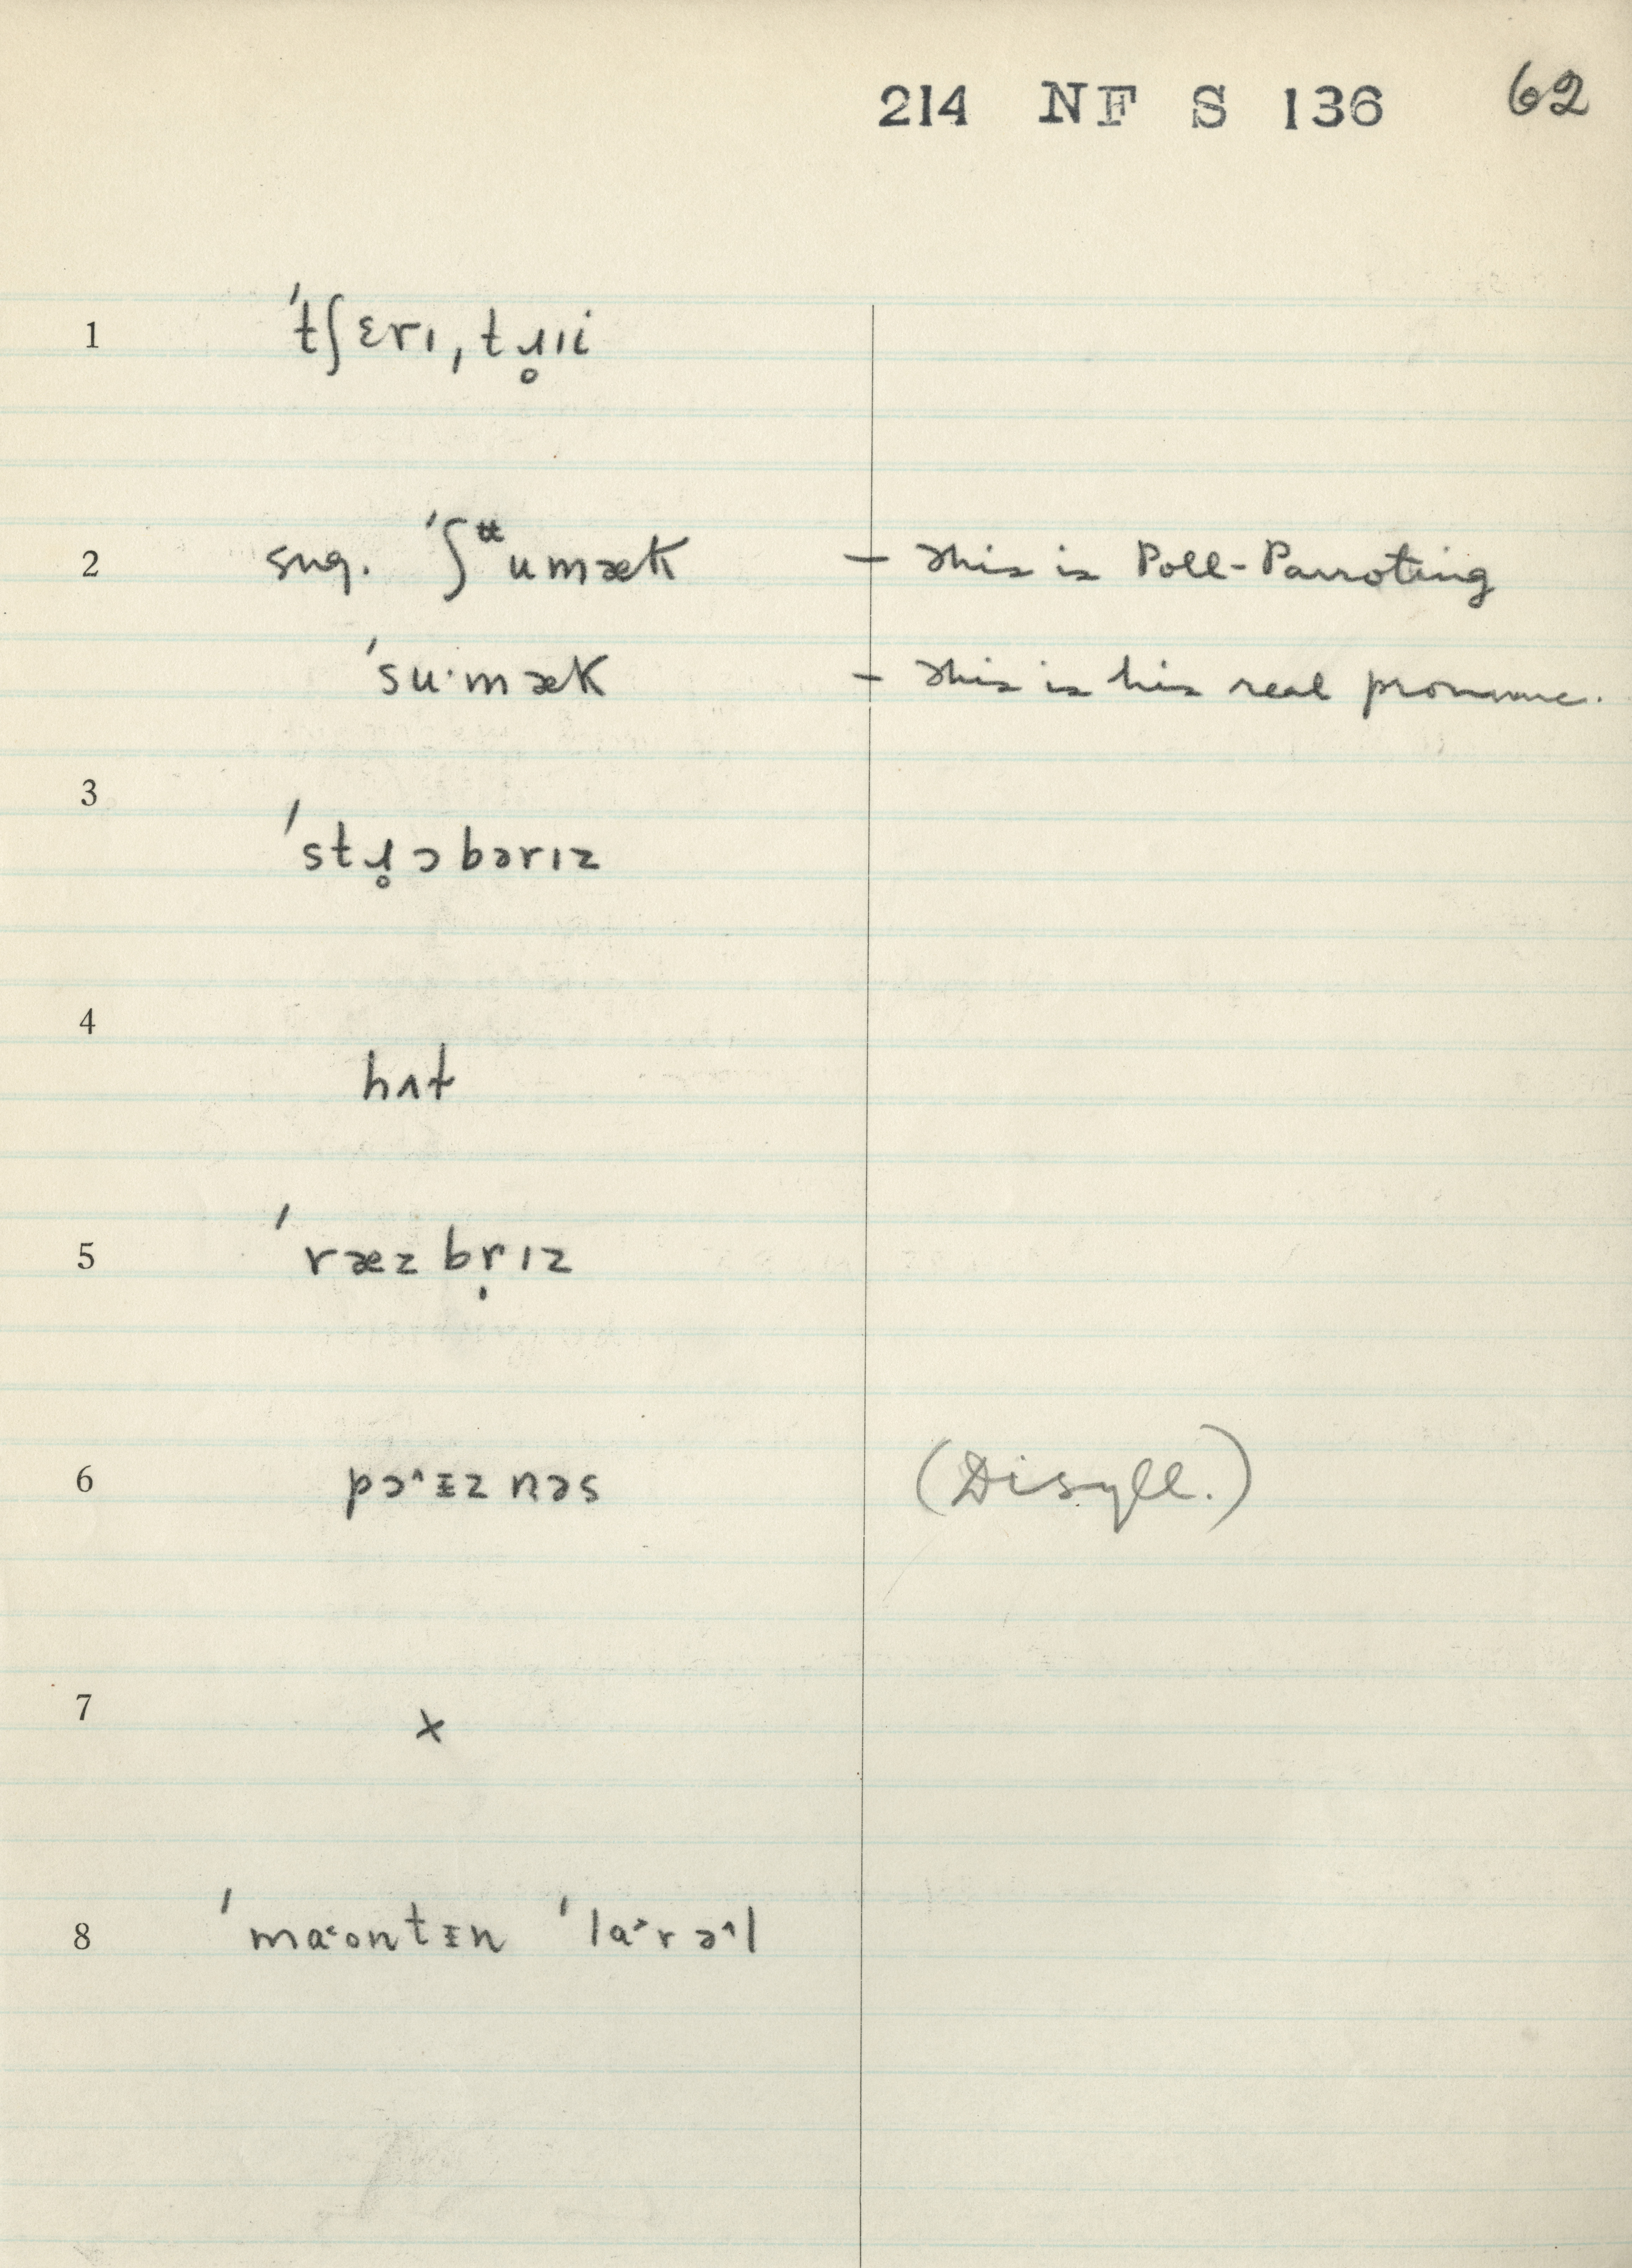 214 NF S 136 62
1 ˈtʃɛrɪ, tɹ̥ɪi
2 sug. ˈʃᵗᵗumækK – This is Poll-Parroting
ˈsu·mæk – This is his real pronunc.
3 ˈstɹ̥ɔbərɪz
4 hʌt
5 ˈræzbr̩ɪz
6 pɔ˄ɪznəs (Disyll.)
7 x
8 ˈma˂ontɪn ˈla˃rə˄l